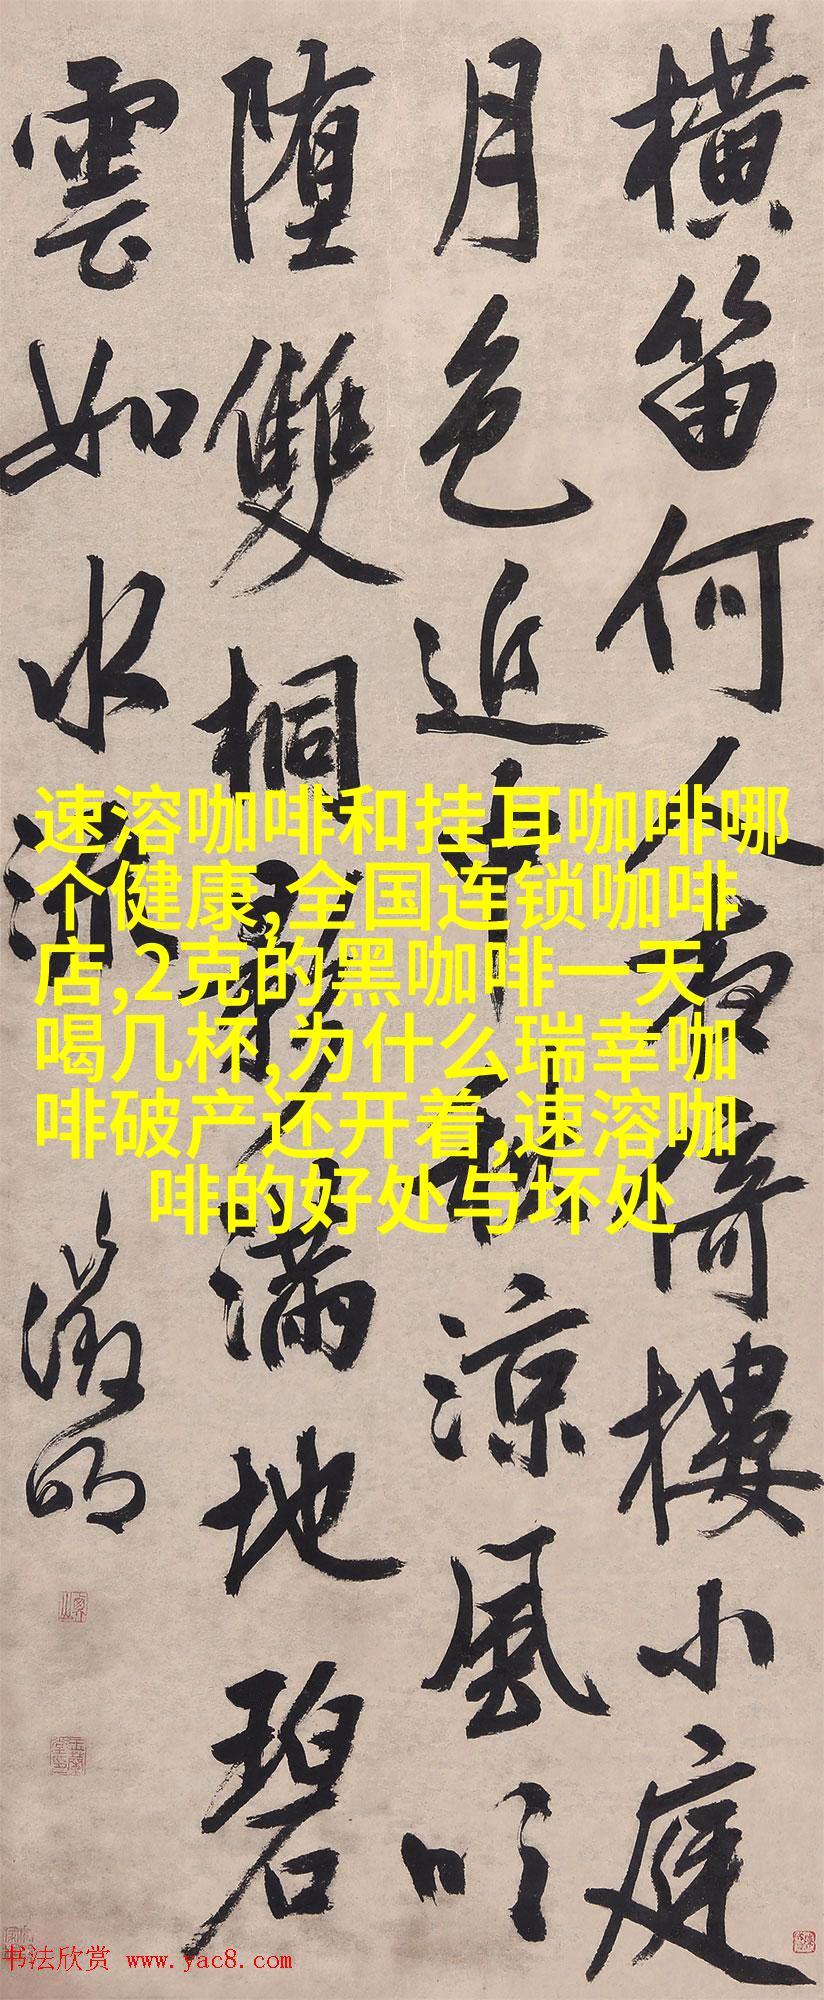 橫笛何人夜倚樓小庭
月色近中秋涼風吹
堕雙桐影滿地碧
雲如水流
徵明
速溶咖啡和挂耳咖啡哪
个健康,全国连锁咖啡
店,2克的黑咖啡一天
喝几杯,为什么瑞幸咖
啡破产还开着,速溶咖
啡的好处与坏处
书法欣赏 www.yac8.com